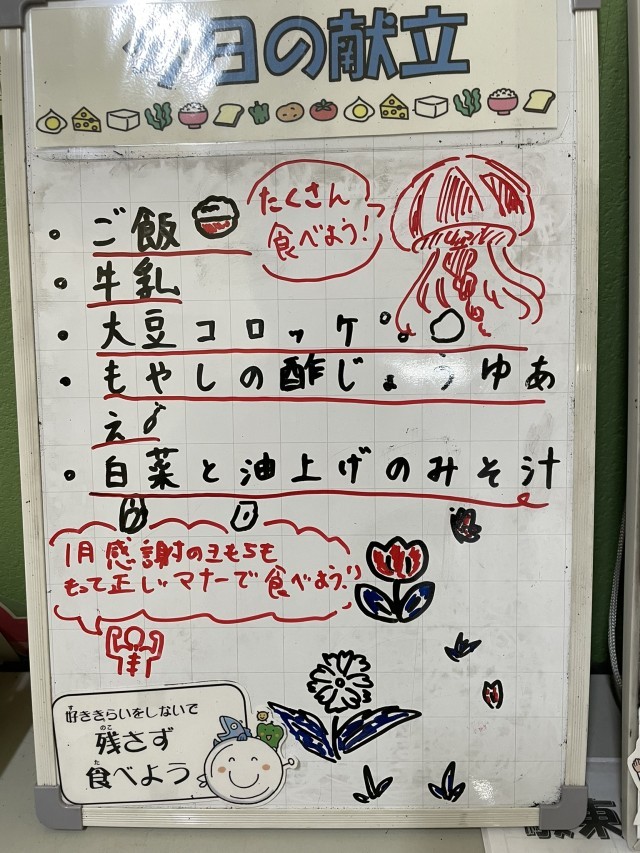 今日の献立
たくさん
食べよう!
・ご飯
・牛乳
・大豆コロッケ
・もやしの酢じょうゆあ
え
・白菜と油上げのみそ汁
1月 感謝のヨもちも
もって正しいマナーで食べよう!!
好ききらいをしないで
残さず
のこ
食べよう
た